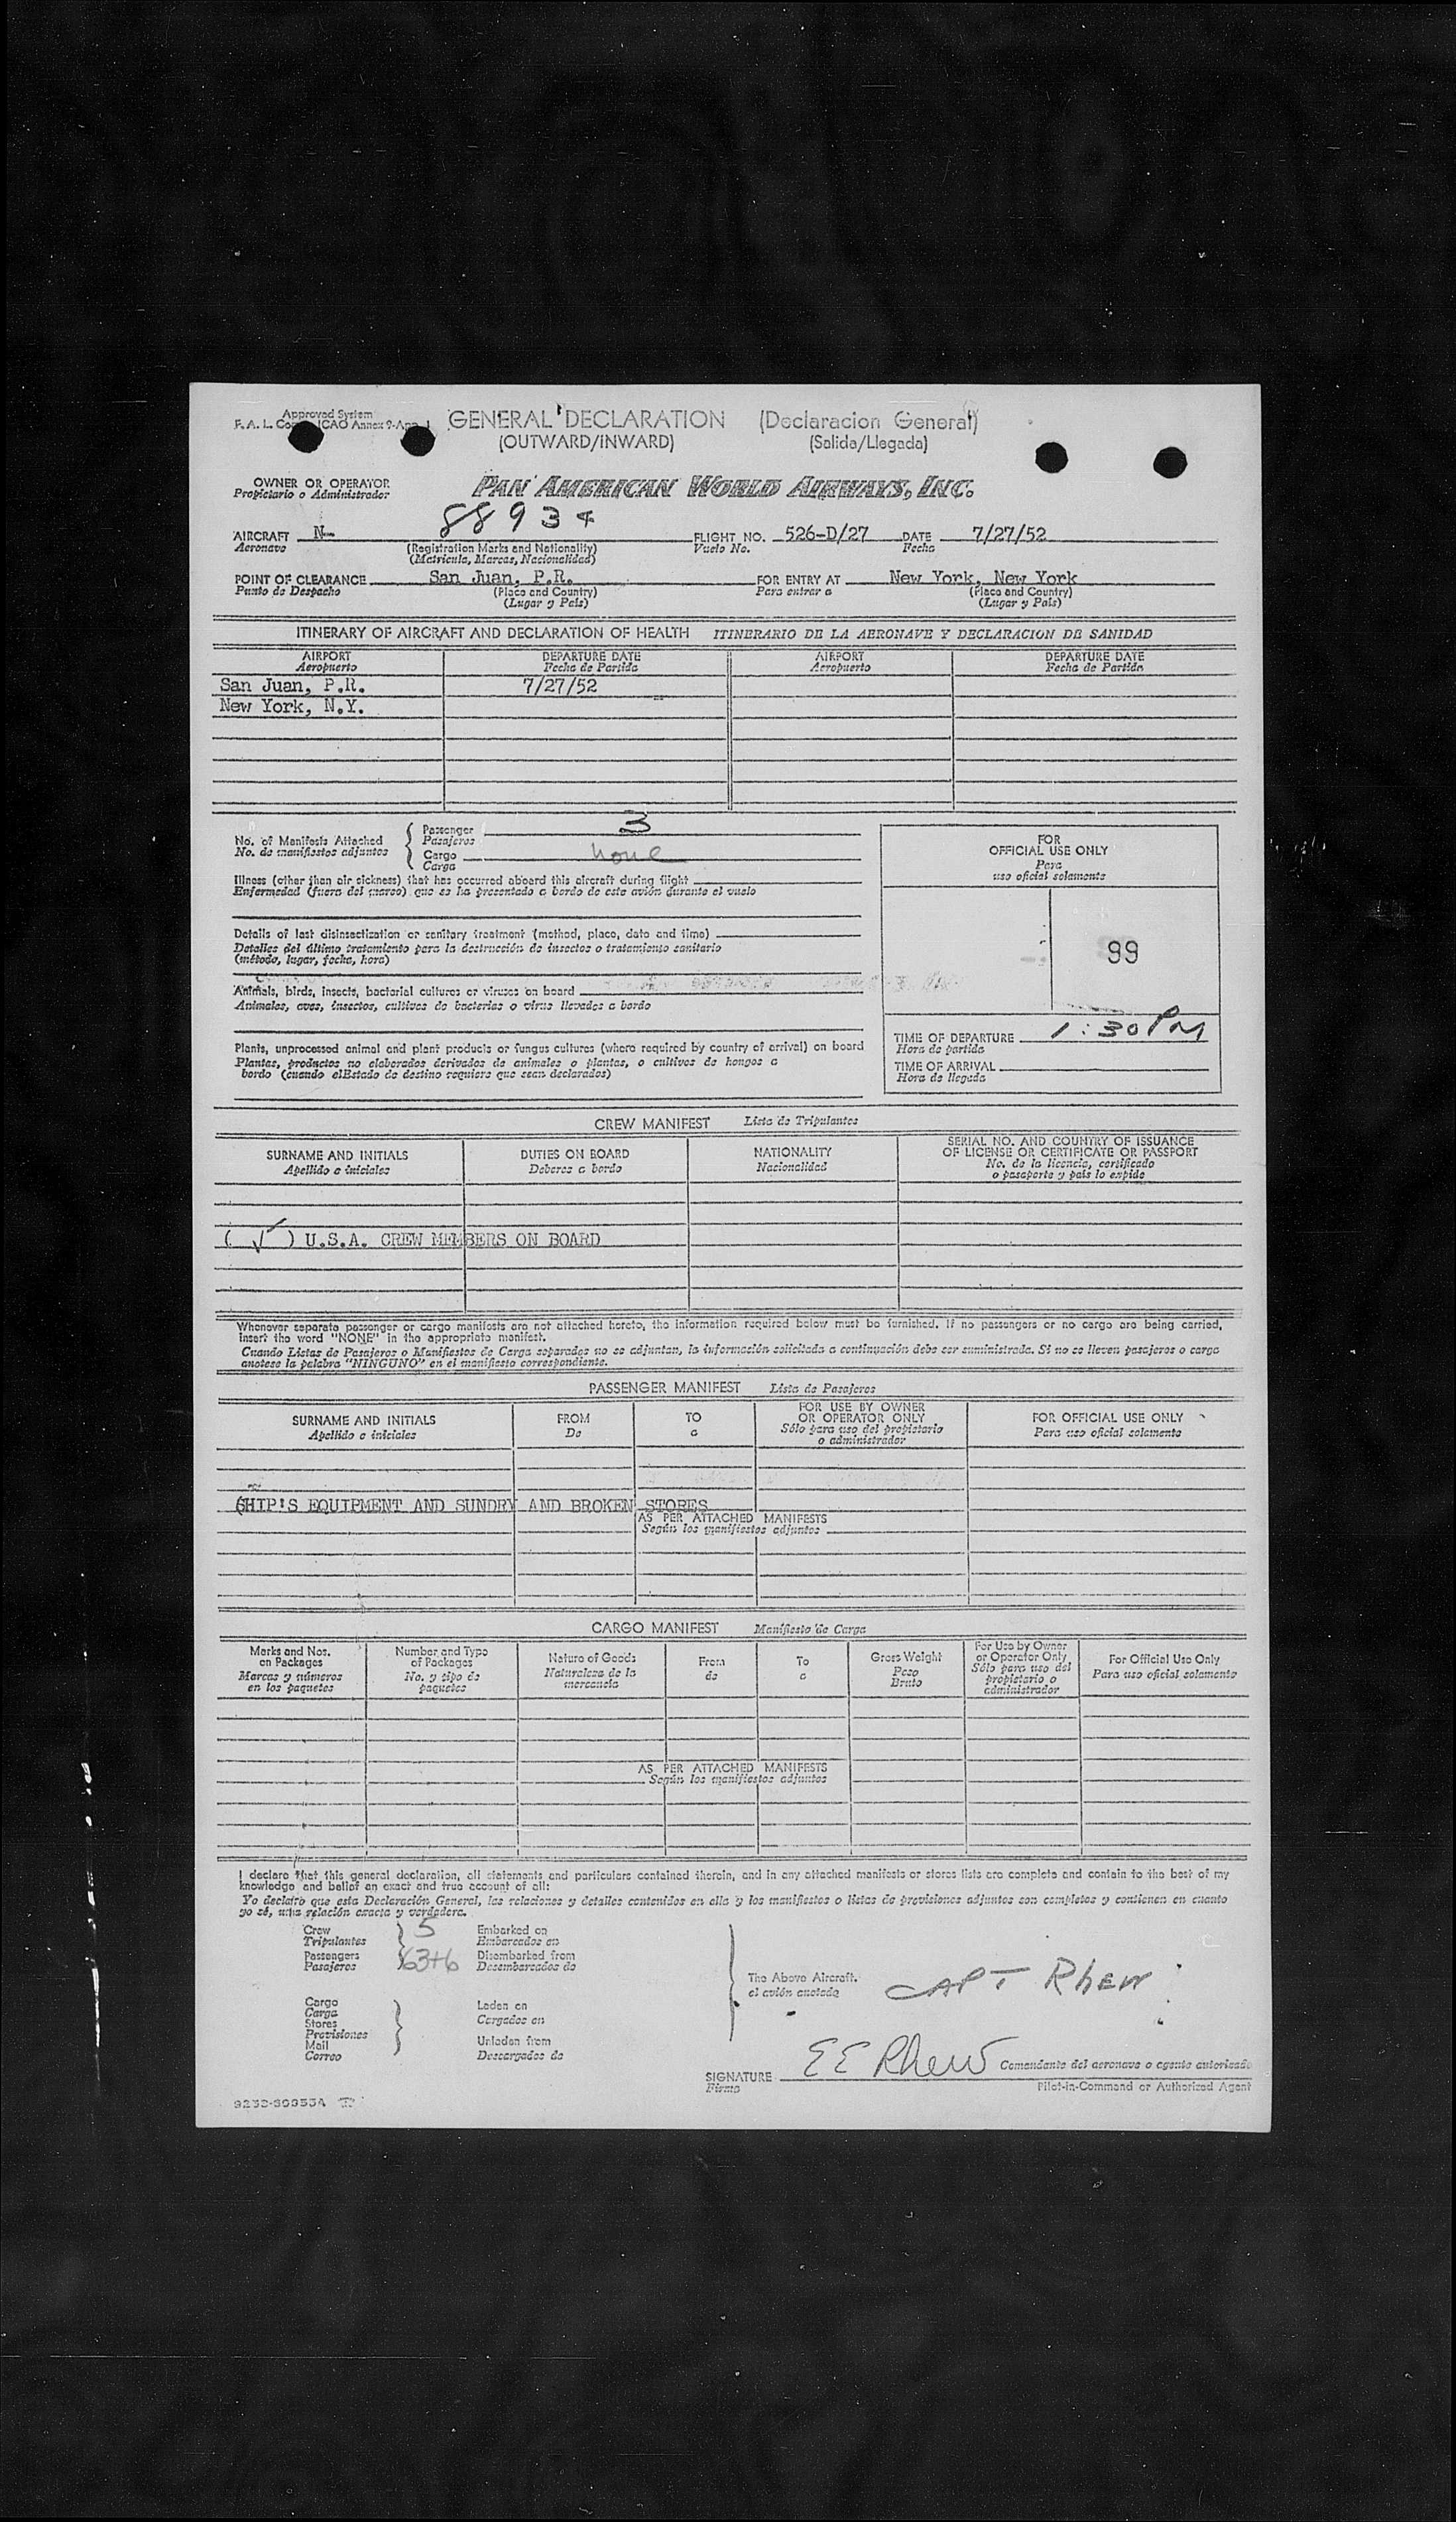 Approved System
F. A. L. ICAO Annex 9-App. 1
GENERAL DECLARATION (Declaracion General)
(OUTWARD/INWARD) (Salida/Llegada)
OWNER OR OPERATOR
Propietario o Administrador
PAN AMERICAN WORLD AIRWAYS, INC.
AIRCRAFT N- 88934 FLIGHT NO. 526-D/27 DATE 7/27/52
Aeronave (Registration Marks and Nationality) Vuelo No. Fecha
(Matricula, Marcas, Nacionalidad)
POINT OF CLEARANCE San Juan, P.R. FOR ENTRY AT New York, New York
Punto de Despacho (Place and Country) Para entrar a (Place and Country)
(Lugar y País) (Lugar y País)
ITINERARY OF AIRCRAFT AND DECLARATION OF HEALTH ITINERARIO DE LA AERONAVE Y DECLARACION DE SANIDAD
AIRPORT DEPARTURE DATE AIRPORT DEPARTURE DATE
Aeropuerto Fecha de Partida Aeropuerto Fecha de Partida
San Juan, P.R. 7/27/52
New York, N.Y.
No. of Manifests Attached
No. de manifiestos adjuntos
Passenger 3
Pasajeros
Cargo none
Carga
Illness (other than air sickness) that has occurred aboard this aircraft during flight
Enfermedad (fuera del mareo) que se ha presentado a bordo de este avión durante el vuelo
Details of last disinsectization or sanitary treatment (method, place, date and time)
Detalles del último tratamiento para la destrucción de insectos o tratamiento sanitario
(método, lugar, fecha, hora)
Animals, birds, insects, bacterial cultures or viruses on board
Animales, aves, insectos, cultivos de bacterias o virus llevados a bordo
Plants, unprocessed animal and plant products or fungus cultures (where required by country of arrival) on board
Plantas, productos no elaborados derivados de animales o plantas, o cultivos de hongos a
bordo (cuando elEstado de destino requiere que sean declarados)
FOR
OFFICIAL USE ONLY
Para
uso oficial solamente
99
TIME OF DEPARTURE 1:30 PM
Hora de partida
TIME OF ARRIVAL
Hora de llegada
CREW MANIFEST Lista de Tripulantes
SURNAME AND INITIALS DUTIES ON BOARD NATIONALITY SERIAL NO. AND COUNTRY OF ISSUANCE
OF LICENSE OR CERTIFICATE OR PASSPORT
Apellido e iniciales Deberes a bordo Nacionalidad No. de la licencia, certificado
o pasaporte y país lo expide
( √ ) U.S.A. CREW MEMBERS ON BOARD
Whenever separate passenger or cargo manifests are not attached hereto, the information required below must be furnished. If no passengers or no cargo are being carried,
insert the word "NONE" in the appropriate manifest.
Cuando Listas de Pasajeros o Manifiestos de Carga separados no se adjuntan, la información solicitada a continuación debe ser suministrada. Si no se lleven pasajeros o carga
anotese la palabra "NINGUNO" en el manifiesto correspondiente.
PASSENGER MANIFEST Lista de Pasajeros
SURNAME AND INITIALS FROM TO FOR USE BY OWNER FOR OFFICIAL USE ONLY
OR OPERATOR ONLY
Apellido e iniciales De a Sólo para uso del propietario Para uso oficial solamente
o administrador
SHIP'S EQUIPMENT AND SUNDRY AND BROKEN STORES
AS PER ATTACHED MANIFESTS
Según los manifiestos adjuntos
CARGO MANIFEST Manifiesto de Carga
Marks and Nos.
on Packages
Marcas y números
en los paquetes
Number and Type
of Packages
No. y tipo de
paquetes
Nature of Goods
Naturaleza de la
mercancía
From
de
To
a
Gross Weight
Peso
Bruto
For Use by Owner
or Operator Only
Sólo para uso del
propietario o
administrador
For Official Use Only
Para uso oficial solamente
AS PER ATTACHED MANIFESTS
Según los manifiestos adjuntos
I declare that this general declaration, all statements and particulars contained therein, and in any attached manifests or stores lists are complete and contain to the best of my
knowledge and belief an exact and true account of all:
Yo declaro que esta Declaración General, las relaciones y detalles contenidos en ella y los manifiestos o listas de provisiones adjuntos son completos y contienen en cuanto
yo sé, una relación exacta y verdadera.
Crew 5 Embarked on
Tripulantes Embarcados en
Passengers 63+6 Disembarked from
Pasajeros Desembarcados de
The Above Aircraft.
el avión anotado
CAPT Rhew
Cargo
Carga
Stores
Provisiones
Mail
Correo
Laden on
Cargados en
Unladen from
Descargados de
SIGNATURE E E Rhew Comandante del aeronave o agente autorizado
Firma Pilot-in-Command or Authorized Agent